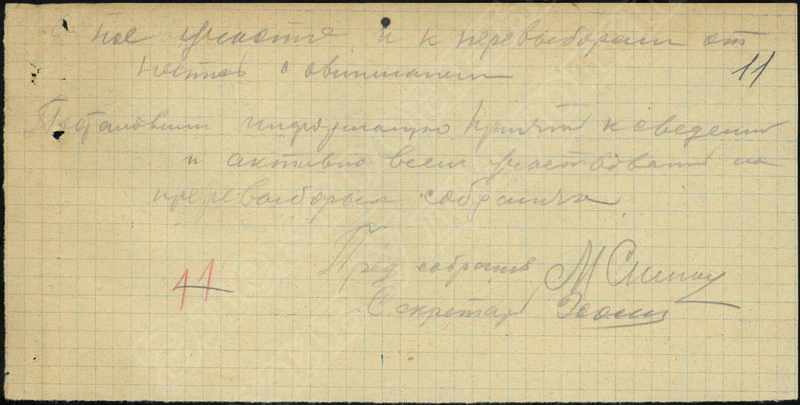 ное участие и к перевыборам от
11
Постановили информацию принять к сведению
и активно всем участвовать на
перевыборных собраниях
Пред собрания
11
Секретарь